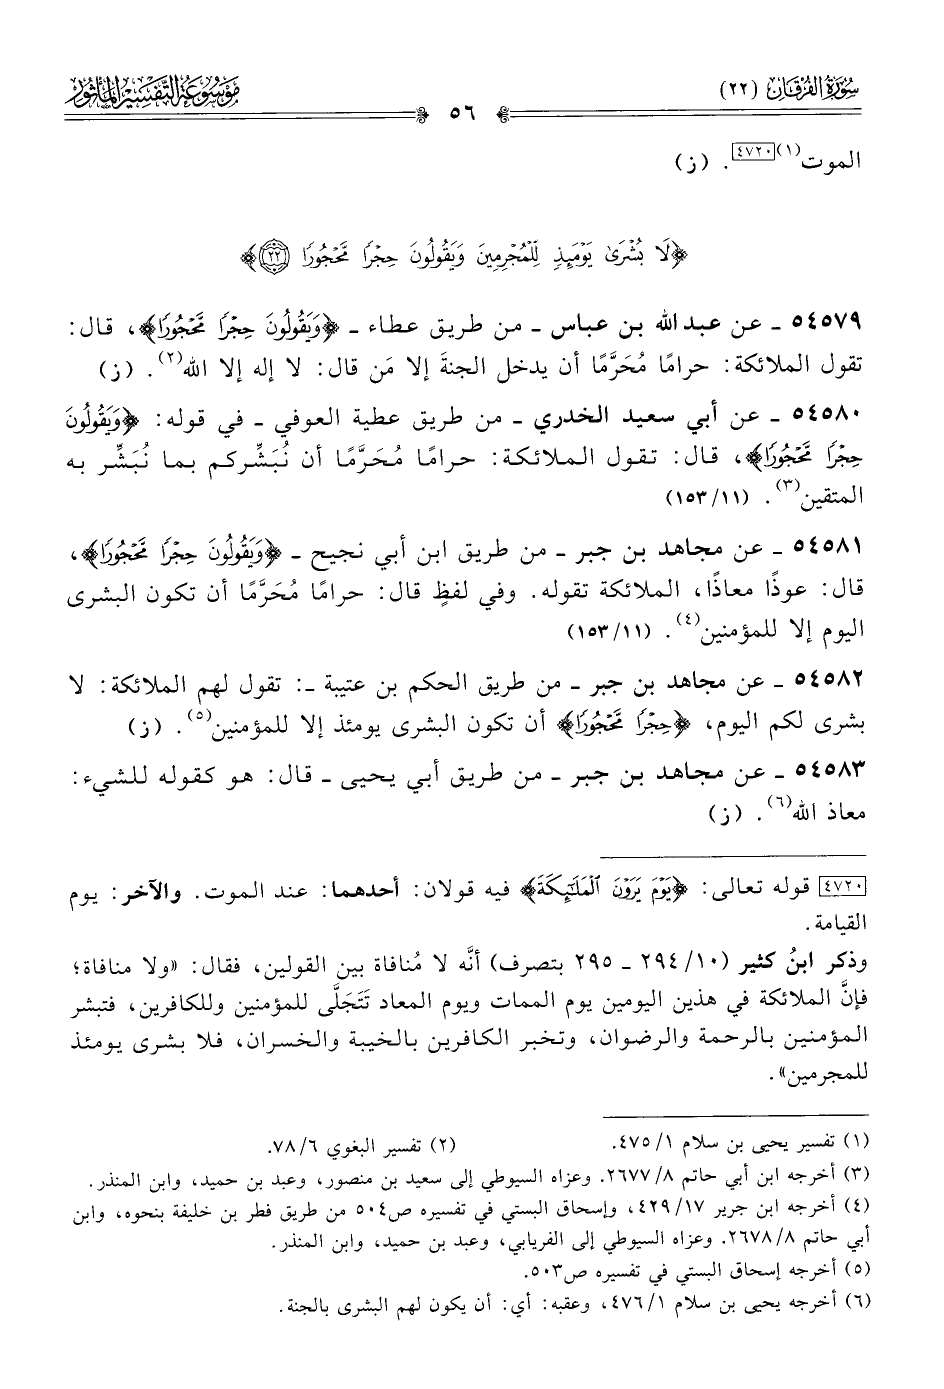 سُورَةُ الفُرْقَان (٢٢)
٥٦
مَوْسُوعَةُ التَّفْسِيرِ المَأْثُورِ
الموت(١)[٤٧٢٠]. (ز)
﴿لَا بُشْرَىٰ يَوْمَئِذٍ لِّلْمُجْرِمِينَ وَيَقُولُونَ حِجْرًا مَّحْجُورًا ۝٢٢﴾
٥٤٥٧٩ ـ عن عبد الله بن عباس ـ من طريق عطاء ـ ﴿وَيَقُولُونَ حِجْرًا مَّحْجُورًا﴾، قال:
تقول الملائكة: حرامًا مُحَرَّمًا أن يدخل الجنةَ إلا مَن قال: لا إله إلا الله(٢). (ز)
٥٤٥٨٠ ـ عن أبي سعيد الخدري ـ من طريق عطية العوفي ـ في قوله: ﴿وَيَقُولُونَ
حِجْرًا مَّحْجُورًا﴾، قال: تقول الملائكة: حرامًا مُحَرَّمًا أن نُبَشِّركم بما نُبَشِّر به
المتقين(٣). (١٥٣/١١)
٥٤٥٨١ ـ عن مجاهد بن جبر ـ من طريق ابن أبي نجيح ـ ﴿وَيَقُولُونَ حِجْرًا مَّحْجُورًا﴾،
قال: عوذًا معاذًا، الملائكة تقوله. وفي لفظٍ قال: حرامًا مُحَرَّمًا أن تكون البشرى
اليوم إلا للمؤمنين(٤). (١٥٣/١١)
٥٤٥٨٢ ـ عن مجاهد بن جبر ـ من طريق الحكم بن عتيبة ـ: تقول لهم الملائكة: لا
بشرى لكم اليوم، ﴿حِجْرًا مَّحْجُورًا﴾ أن تكون البشرى يومئذ إلا للمؤمنين(٥). (ز)
٥٤٥٨٣ ـ عن مجاهد بن جبر ـ من طريق أبي يحيى ـ قال: هو كقوله للشيء:
معاذ الله(٦). (ز)
[٤٧٢٠] قوله تعالى: ﴿يَوْمَ يَرَوْنَ الْمَلَٰٓئِكَةَ﴾ فيه قولان: أحدهما: عند الموت. والآخر: يوم
القيامة.
وذكر ابنُ كثير (٢٩٤/١٠ ـ ٢٩٥ بتصرف) أنَّه لا مُنافاة بين القولين، فقال: «ولا منافاة؛
فإنَّ الملائكة في هذين اليومين يوم الممات ويوم المعاد تَتَجَلَّى للمؤمنين وللكافرين، فتبشر
المؤمنين بالرحمة والرضوان، وتخبر الكافرين بالخيبة والخسران، فلا بشرى يومئذ
للمجرمين».
(١) تفسير يحيى بن سلام ٤٧٥/١. (٢) تفسير البغوي ٧٨/٦.
(٣) أخرجه ابن أبي حاتم ٢٦٧٧/٨. وعزاه السيوطي إلى سعيد بن منصور، وعبد بن حميد، وابن المنذر.
(٤) أخرجه ابن جرير ٤٢٩/١٧، وإسحاق البستي في تفسيره ص٥٠٤ من طريق فطر بن خليفة بنحوه، وابن
أبي حاتم ٢٦٧٨/٨. وعزاه السيوطي إلى الفريابي، وعبد بن حميد، وابن المنذر.
(٥) أخرجه إسحاق البستي في تفسيره ص٥٠٣.
(٦) أخرجه يحيى بن سلام ٤٧٦/١، وعقبه: أي: أن يكون لهم البشرى بالجنة.